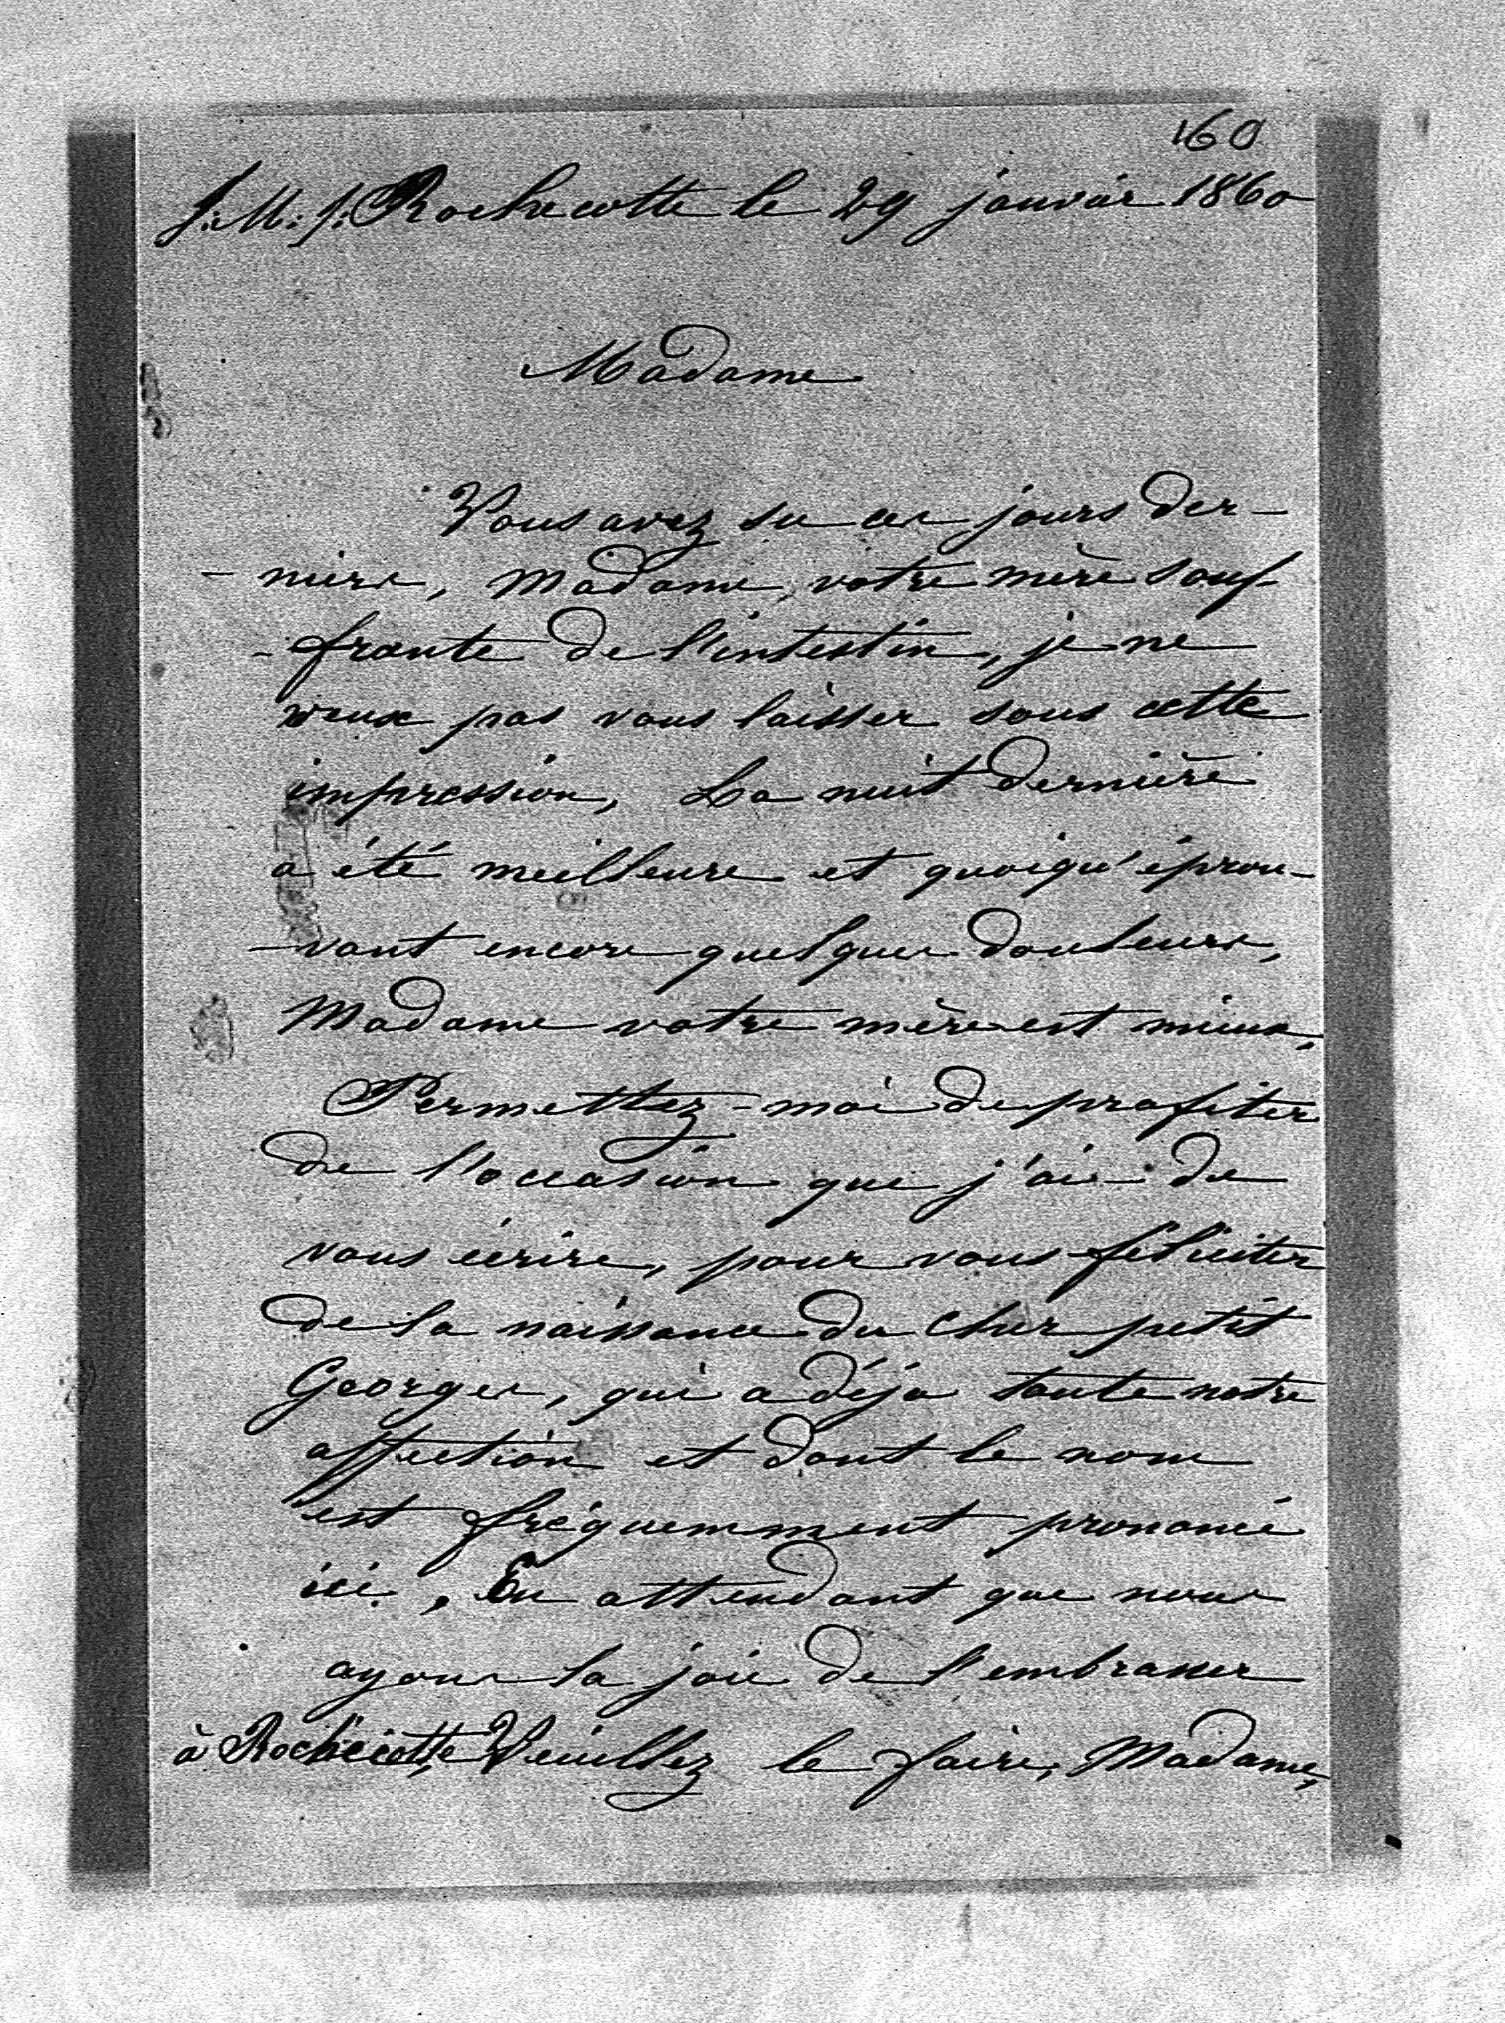 160
J. M. J. Rochecotte le 29 janvier 1860
Madame
Vous avez su ces jours der-
-niers, Madame votre mère souf
-frante de l'intestin, je ne
veux pas vous laisser sous cette
impression, La nuit dernière
a été meilleure et quoiqu'éprou-
-vant encore quelques douleurs,
Madame votre mère est mieux.
Permettez-moi de profiter
de l'occasion que j'ai de
vous écrire, pour vous féliciter
de la naissance du cher petit
Georges, qui a déjà toute notre
affection et dont le nom
est fréquemment prononcé
ici. En attendant que nous
ayons la joie de l'embrasser
à Rochecotte, Veuillez le faire, Madame,